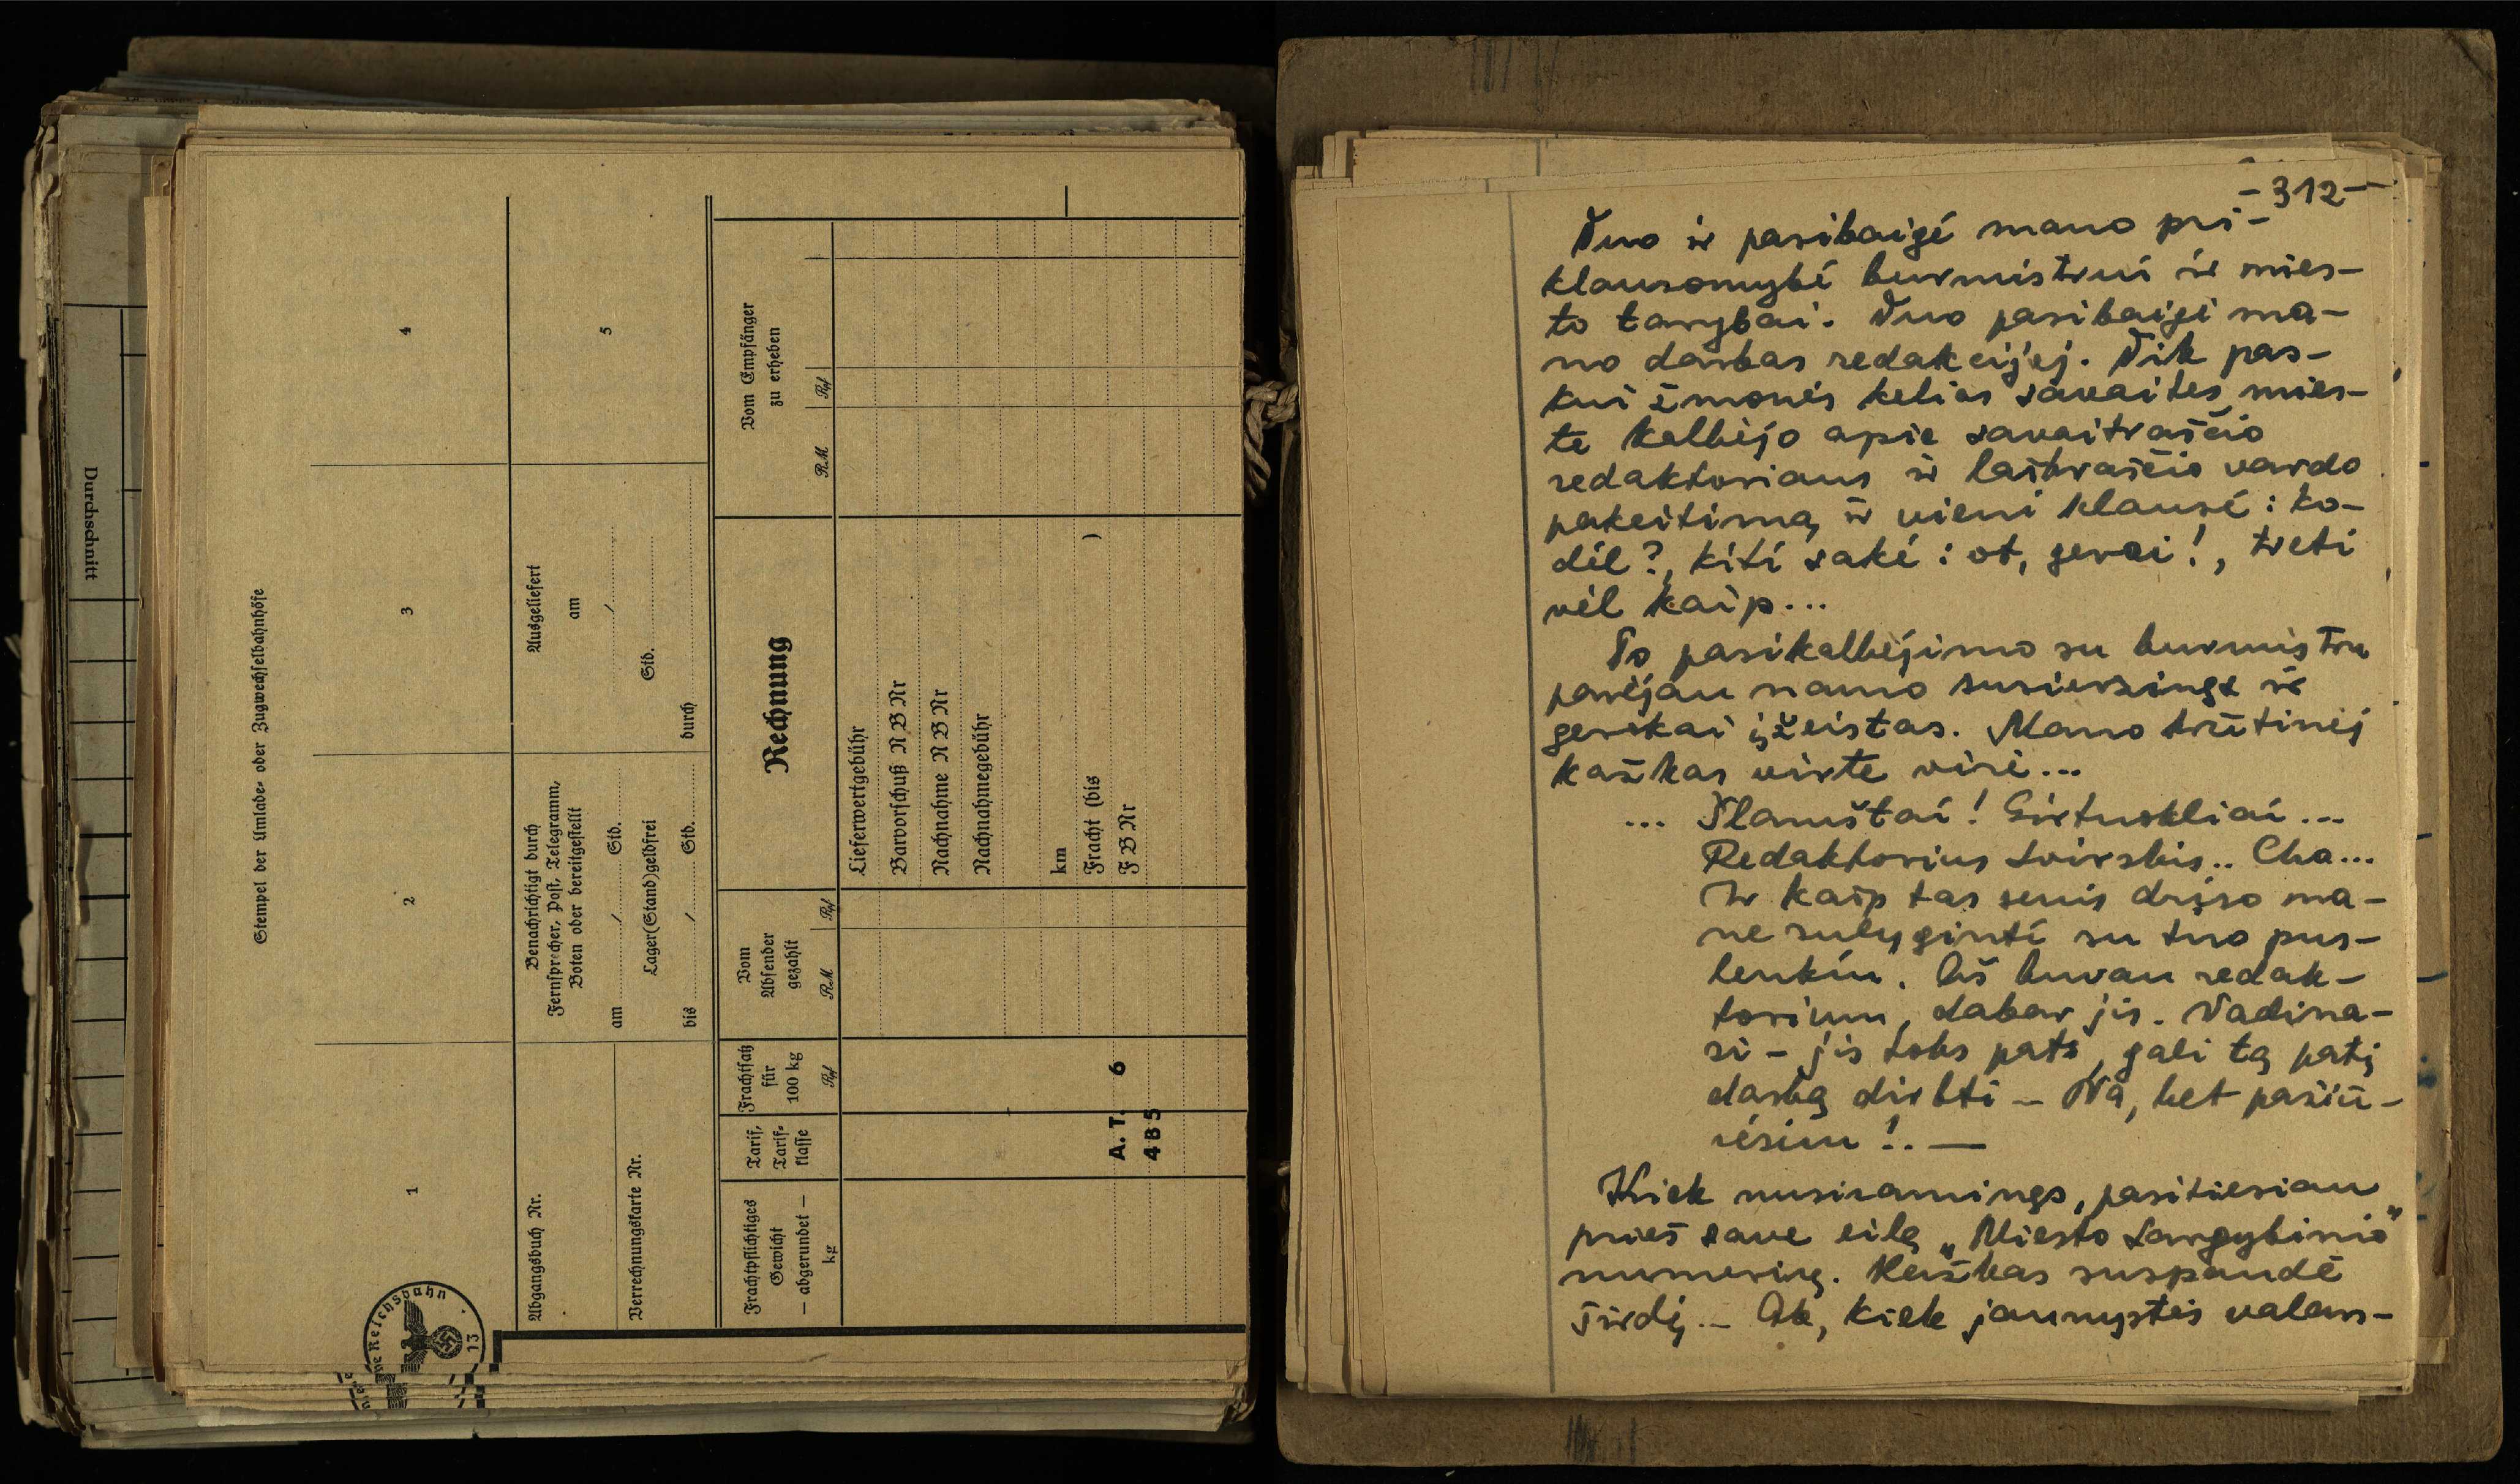 Durchschnitt
Stempel der Umlade- oder Zugwechselbahnhöfe
1
2
3
4
Abgangsbuch Nr.
Verrechnungskarte Nr.
Benachrichtigt durch
Fernsprecher, Post, Telegramm,
Boten oder bereitgestellt
am / Std.
Lager(Stand)geldfrei
bis / Std.
Ausgeliefert
am
/
Std.
durch
5
Frachtpflichtiges
Gewicht
— abgerundet —
kg
Tarif,
Tarif-
klasse
Frachtsatz
für
100 kg
Rpf
Vom
Absender
gezahlt
RM Rpf
Rechnung
Vom Empfänger
zu erheben
RM Rpf
Lieferwertgebühr
Barvorschuß N B Nr
Nachnahme N B Nr
Nachnahmegebühr
km
Fracht (bis )
F B Nr
A. T. 6
4 B 5
Reichsbahn
13
- 312 -
Tuo ir pasibaigė mano pri-
klausomybė burmistrui ir mies-
to tarybai. Tuo pasibaigė ma-
no darbas redakcijej. Tik pas-
kui žmonės kelias savaites mies-
te kalbėjo apie savaitraščio
redaktoriaus ir laikraščio vardo
pakeitimą ir vieni klausė: ko-
dėl?, kiti sakė: ot, gerai!, treti
vėl kaip...
Po pasikalbėjimo su burmistru
parėjau namo susierzinęs ir
gerokai įžeistas. Mano krūtinėj
kažkas virte virė...
... Plamštai! Girtuokliai...
Redaktorius tvirskis.. Cha...
Ir kaip tas senis drįso ma-
ne sulyginti su tuo pus-
lenkiu. Aš buvau redak-
torium, dabar jis. Vadina-
si - jis toks pats, gali tą patį
darbą dirbti - Na, bet pažiū-
rėsim!. —
Kiek nusiraminęs, pasitiesiau
prieš save eilę „Miesto Sargybinio"
numerių. Kažkas suspaudė
širdį. - Ak, kiek jaunystės valan-